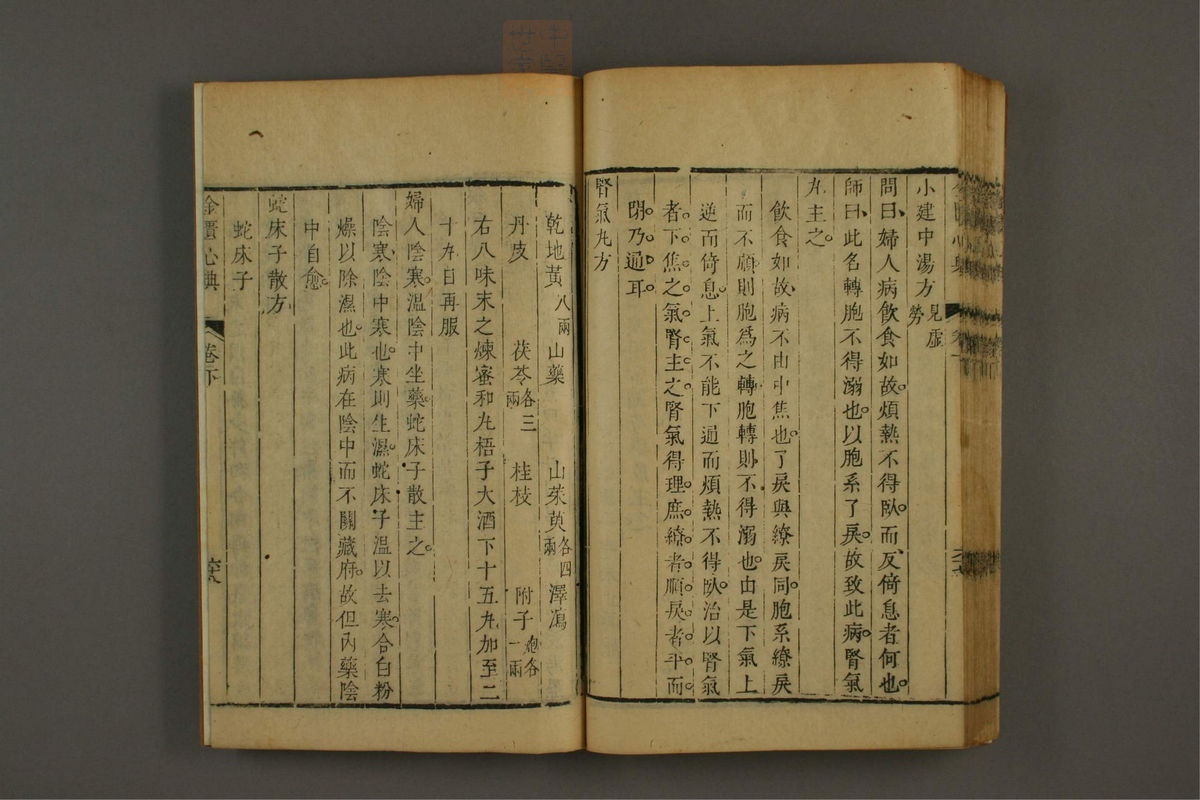 小建中湯方見虛勞
問曰婦人病飲食如故煩熱不得臥而反倚息者何也
師曰此名轉胞不得溺也以胞系了戾故致此病腎氣
丸主之
飲食如故病不由中焦也了戾與繚戾同胞系繚戾
而不順則胞為之轉胞轉則不得溺也由是下氣上
逆而倚息上氣不能下通而煩熱不得臥治以腎氣
者下焦之氣腎主之腎氣得理庶繚者順戾者平而
閉乃通耳
腎氣丸方
乾地黃八兩 山藥 山茱萸各四兩 澤瀉
丹皮 茯苓各三兩 桂枝 附子炮各一兩
右八味末之煉蜜和丸梧子大酒下十五丸加至二
十丸日再服
婦人陰寒溫陰中坐藥蛇床子散主之
陰寒陰中寒也寒則生濕蛇床子溫以去寒合白粉
燥以除濕也此病在陰中而不關藏府故但內藥陰
中自愈
蛇床子散方
蛇床子
金匱心典 卷下